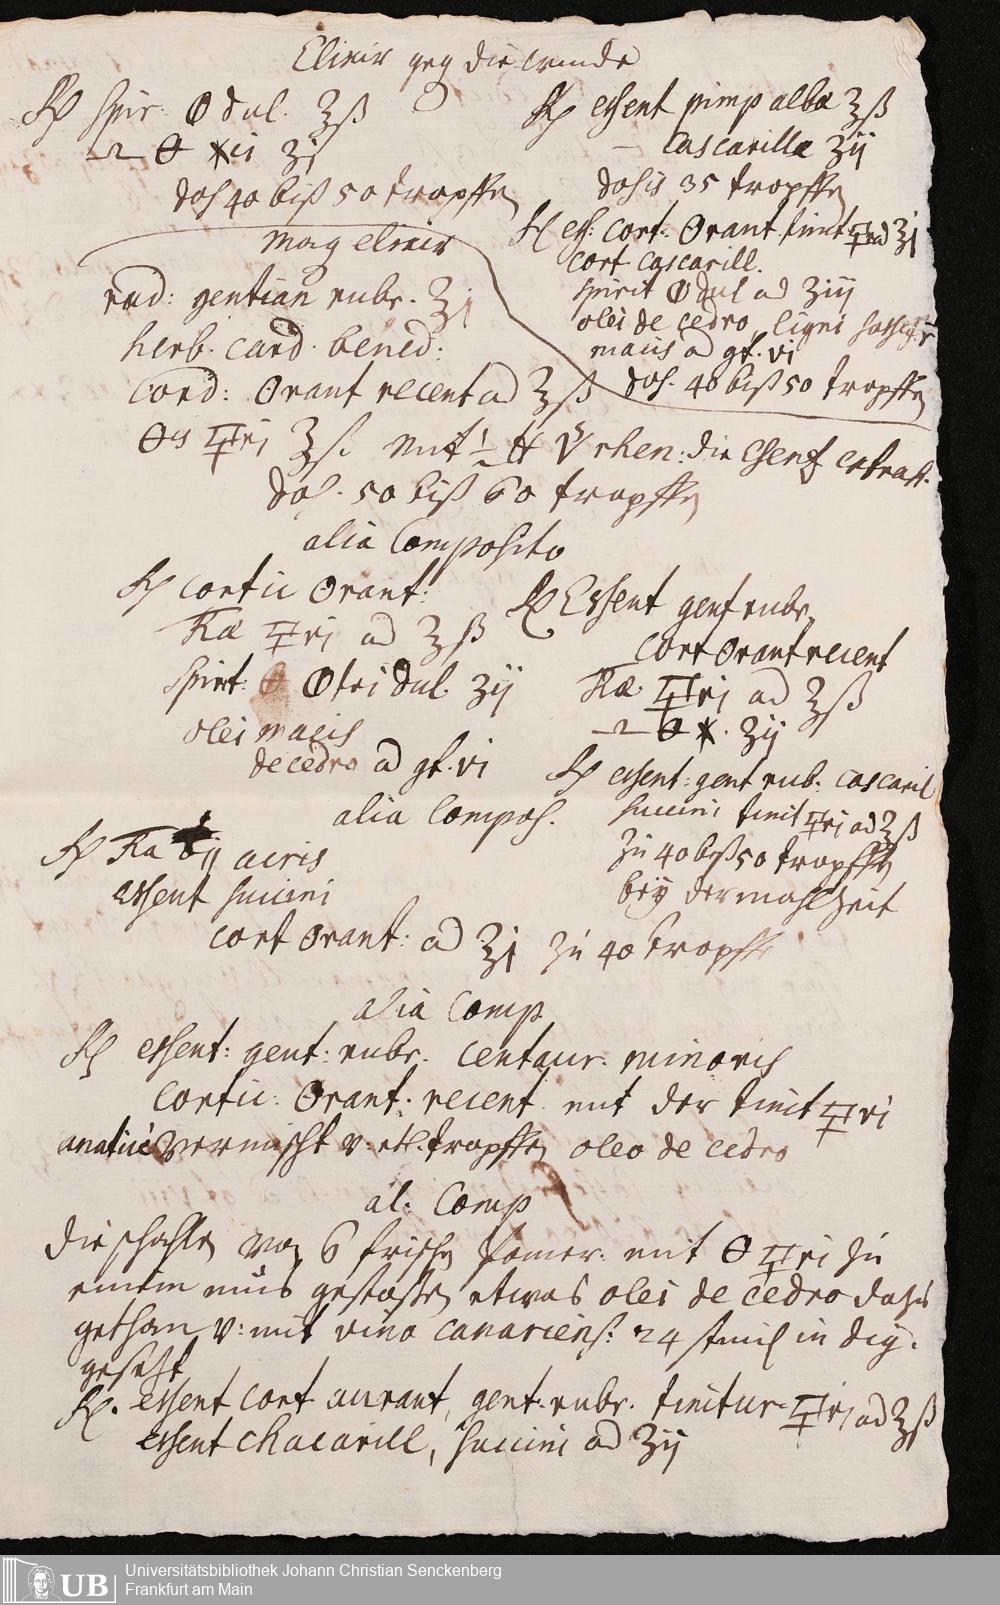 Elixir geg die winde
Rp spir. 🜕 dul. ʒß
🜔 ✶ci ʒj
dos 40 biß 50 tropffen
Rp essent pimp albæ ʒß
— Cascarillæ ʒij
dosis 35 tropffen
Rp ess: cort: Orant. tinct 🜿ri ad ʒj
cort cascarill.
spirit 🜕 dul ad ʒiij
olei de cedro, ligni
macis ad gt. vi
dos. 40 biß 50 tropffen
mag elixir
rad: gentian rubr. ʒj
herb. card. bened:
cord: Orant recent ad ʒß
🜿ri ʒß. mit ½ ℔ rhen: die essenz extrah.
dos. 50 biß 60 tropffen
alia Composito
Rp cortic Orant:
🜿ri ad ʒß
spirit: 🜕tri dul. ʒij
olei macis
de cedro ad gt. vi
Rp Essent gent rubr,
cort Orant recent
🜿ri ad ʒß
🜔 ✶. ʒij
Rp essent: gent rub: cascaril
succini tinct 🜿ri ad ʒß
zu 40 biß 50 tropffen
bey der mahlzeit
alia Compos.
Rp acris
essent succini
cort Orant: ad ʒj zu 40 tropffen
alia Comp
Rp essent: gent: rubr. centaur. minoris
cortic: Orant. recent mit der tinct 🜿ri
vermischt v: etl. tropffen oleo de cedro
al. Comp
die schahlen von 6 frischen Pomer. mit 🜔 🜿ri zu
einem mus gestoßen etwas olei de cedro dazu
gethan v: mit vino canariens: 24 stund in dig.
gesetzt
Rp. essent cort aurant, gent. rubr. tinctur 🜿ri ad ʒß
essent chacarill, succini ad ʒij
Universitätsbibliothek Johann Christian Senckenberg
Frankfurt am Main
UB